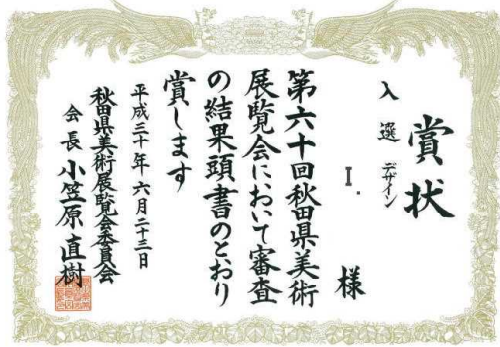 賞状
入選 デザイン
I. 様
第六十回秋田県美術
展覧会において審査
の結果頭書のとおり
賞します
平成三十年六月二十三日
秋田県美術展覧会委員会
会長 小笠原直樹